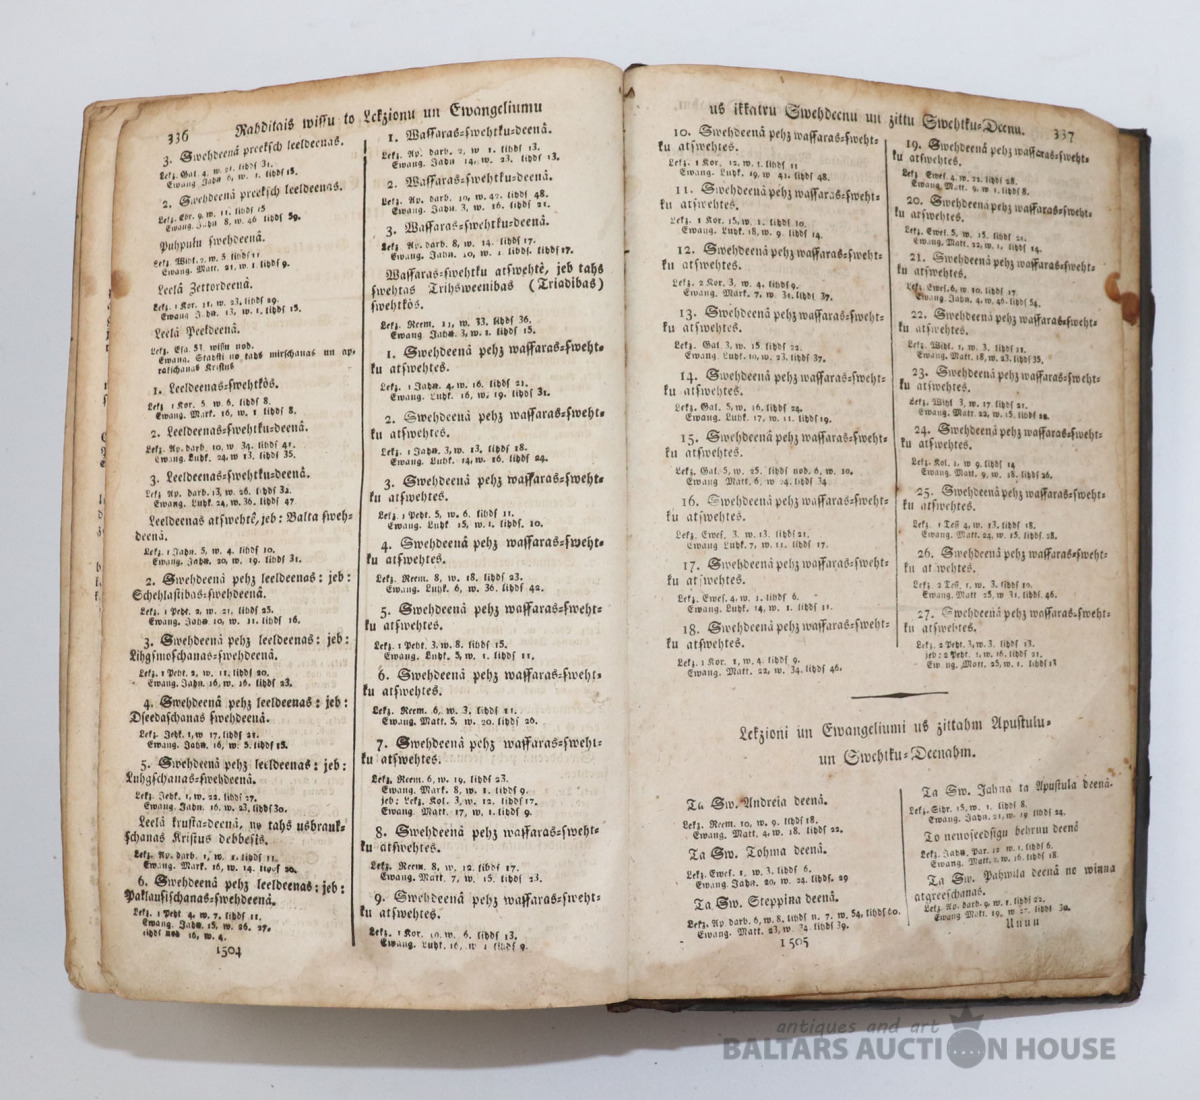 336 Rahditais wissu to Lekzionu un Ewangeliumu
3. Swehdeenâ preeksch leeldeenas.
Lekz. Gal. 4, w. 21. lihds 31.
Ewang. Jahn 6, w. 1. lihds 15.
2. Swehdenâ preeksch leeldeenas.
Lekz. Ebr. 9, w. 11. lihds 15
Ewang. Jahn 8, w. 46 lihds 59.
Puhpulu swehdeenâ.
Lekz. Wihl. 2, w. 5 lihds 11
Ewang. Matt. 21, w. 1 lihds 9.
Leelâ Zettordeenâ.
Lekz. 1 Kor. 11, w. 23, lihds 29.
Ewang Jahn. 13, w. 1. lihds 15.
Leelâ Peekdeenâ.
Lekz. Esa. 53. wissu nod.
Ewang. Stahsti no tahs mirschanas un ap-
rakschanas Kristus
1. Leeldeenas-swehtkôs.
Lekz 1 Kor. 5 w. 6. lihds 8.
Ewang. Mark. 16, w. 1 lihds 8.
2. Leeldeenas-swehtku-deenâ.
Lekz. Ap. darb. 10, w 34. lihds 41.
Ewang. Luhk. 24, w 13. lihds 35.
3. Leeldeenas-swehtku-deenâ.
Lekz Ap. darb. 13, w. 26. lihds 32.
Ewang. Luhk. 24, w. 36. lihds 47
Leeldeenas atswehtê, jeb: Balta sweh-
deenâ.
Lekz. 1 Jahn. 5, w. 4. lihds 10.
Ewang. Jahn. 20, w. 19. lihds 31.
2. Swehdeenâ pehz leeldeenas: jeb:
Schehlastibas-swehdeenâ.
Lekz. 1 Peht. 2, w. 21. lihds 25.
Ewang. Jahn 10, w. 11. lihds 16.
3. Swehdeenâ pehz leeldeenas: jeb:
Lihgsmoschanas-swehdeenâ.
Lekz. 1 Peht. 2, w. 11. lihds 20.
Ewang. Jahn. 16, w. 16. lihds 23.
4. Swehdeenâ pehz leeldeenas: jeb:
Dseedaschanas swehdeenâ.
Lekz. Jehk. 1, w 17. lihds 21.
Ewang. Jahn. 16, w. 5. lihds 15.
5. Swehdeenâ pehz leeldeenas: jeb:
Luhgschanas-swehdeenâ.
Lekz. Jehk. 1, w. 22. lihds 27.
Ewang. Jahn. 16. w. 23, lihds 30.
Leelâ krusta-deenâ, no tahs usbrauk-
schanas Kristus debbesîs.
Lekz. Ap. darb. 1, w. 1. lihds 11.
Ewang. Mark. 16, w. 14. lihds 20.
6. Swehdeenâ pehz leeldeenas: jeb:
Paklausischanas-swehdeenâ.
Lekz. 1 Peht 4, w. 7, lihds 11.
Ewang. Jahn. 15, w. 26. 27.
lihds nod 16, w. 4.
1504
1. Wassaras-swehtku-deenâ.
Lekz. Ap. darb. 2, w 1. lihds 13.
Ewang. Jahn 14, w. 23. lihds 13.
2. Wassaras-swehtku-deenâ.
Lekz. Ap. darb. 10, w. 42. lihds 48.
Ewang. Jahn. 3, w. 16. lihds 21.
3. Wassaras-swehtku-deenâ.
Lekz. Ap. darb. 8, w. 14. lihds 17.
Ewang. Jahn. 10, w. 1 lihds. lihds 17.
Wassaras-swehtku atswehtê, jeb tahs
swehtas Trihsweenibas (Triadibas)
swehtkôs.
Lekz. Reem. 11, w. 33. lihds 36.
Ewang. Jahn. 3, w. 1. lihds 15.
1. Swehdeenâ pehz wassaras-sweht-
ku atswehtes.
Lekz. 1 Jahn. 4, w. 16. lihds 21.
Ewang. Luhk. 16, w. 19. lihds 31.
2. Swehdeenâ pehz wassaras-sweht-
ku atswehtes.
Lekz. 1 Jahn. 3, w. 13. lihds 18.
Ewang. Luhk. 14, w. 16. lihds 24.
3. Swehdeenâ pehz wassaras-sweht-
ku atswehtes.
Lekz. 1 Peht. 5, w. 6. lihds 11.
Ewang. Luhk 15, w. 1. lihds. 10.
4. Swehdeenâ pehz wassaras-sweht-
ku atswehtes.
Lekz. Reem. 8, w. 18. lihds 23.
Ewang. Luhk. 6, w. 36. lihds 42.
5. Swehdeenâ pehz wassaras-sweht-
ku atswehtes.
Lekz. 1 Peht. 3, w. 8. lihds 15.
Ewang. Luhk. 5, w. 1. lihds 11.
6. Swehdeenâ pehz wassaras-sweht-
ku atswehtes.
Lekz. Reem. 6, w. 3. lihds 11.
Ewang. Matt. 5, w. 20. lihds 26.
7. Swehdeenâ pehz wassaras-sweht-
ku atswehtes.
Lekz. Reem. 6, w. 19. lihds 23.
Ewang. Mark. 8, w. 1. lihds 9.
jeb: Lekz. Kol. 3, w. 12. lihds 17.
Ewang. Matt. 17, w. 1. lihds 9.
8. Swehdeenâ pehz wassaras-sweht-
ku atswehtes.
Lekz. Reem. 8, w. 12. lihds 17.
Ewang. Matt. 7, w. 15. lihds 23.
9. Swehdeenâ pehz wassaras-sweht-
ku atswehtes.
Lekz. 1 Kor. 10, w. 6. lihds 13.
Ewang. Luhk. 16, w 1 lihds 9.
us ikkatru Swehdeenu un zittu Swehtku-Deenu. 337
10. Swehdeenâ pehz wassaras-sweht-
ku atswehtes.
Lekz. 1 Kor. 12, w. 1. lihds 11
Ewang. Luhk. 19, w 41. lihds 48.
11. Swehdeenâ pehz wassaras-sweht-
ku atswehtes.
Lekz. 1 Kor. 15, w. 1. lihds 10.
Ewang. Luhk. 18, w. 9. lihds 14.
12. Swehdeenâ pehz wassaras-sweht-
ku atswehtes.
Lekz. 2 Kor. 3, w. 4. lihds 9.
Ewang. Mark. 7, w. 31. lihds 37.
13. Swehdeenâ pehz wassaras-sweht-
ku atswehtes.
Lekz. Gal. 3, w. 15. lihds 22.
Ewang. Luhk. 10, w. 23. lihds 37.
14. Swehdeenâ pehz wassaras-sweht-
ku atswehtes.
Lekz. Gal. 5, w. 16. lihds 24.
Ewang. Luhk. 17, w. 11. lihds 19.
15. Swehdeenâ pehz wassaras-sweht-
ku atswehtes.
Lekz. Gal. 5, w. 25. lihds nod. 6, w. 10.
Ewang Matt. 6, w 24. lihds 34
16. Swehdeenâ pehz wassaras-sweht-
ku atswehtes.
Lekz. Ewes. 3. w. 13. lihds 21.
Ewang Luhk. 7, w. 11. lihds 17.
17. Swehdeenâ pehz wassaras-sweht-
ku atswehtes.
Lekz. Ewes. 4, w. 1. lihds 6.
Ewang. Luhk. 14, w. 1. lihds 11.
18. Swehdeenâ pehz wassaras-sweht-
ku atswehtes.
Lekz. 1 Kor. 1, w. 4. lihds 9.
Ewang. Matt. 22, w. 34. lihds 46.
19. Swehdeenâ pehz wassaras-sweht-
ku atswehtes.
Lekz Ewes. 4, w. 22. lihds 28.
Ewang. Matt. 9, w. 1. lihds 8.
20. Swehdeenâ pehz wassaras-sweht-
ku atswehtes.
Lekz Ewes. 5, w. 15. lihds 21.
Ewang. Matt. 22, w. 1. lihds 14.
21. Swehdeenâ pehz wassaras-sweht-
ku atswehtes.
Lekz. Ewes. 6, w. 10. lihds 17.
Ewang. Jahn. 4, w. 46. lihds 54.
22. Swehdeenâ pehz wassaras-sweht-
ku atswehtes.
Lekz. Wihl. 1, w. 3. lihds 11.
Ewang. Matt. 18, w. 23. lihds 35.
23. Swehdeenâ pehz wassaras-sweht-
ku atswehtes.
Lekz. Wihl 3, w. 17. lihds 21.
Ewang. Matt. 22, w. 15. lihds 22.
24. Swehdeenâ pehz wassaras-sweht-
ku atswehtes.
Lekz. Kol. 1, w 9. lihds 14
Ewang. Matt. 9, w. 18. lihds 26.
25. Swehdeenâ pehz wassaras-sweht-
ku atswehtes.
Lekz. 1 Tess 4, w. 13. lihds 18.
Ewang. Matt. 24, w. 15. lihds 28.
26. Swehdeenâ pehz wassaras-sweht-
ku atswehtes.
Lekz. 2 Tess. 1, w. 3. lihds 10.
Ewang. Matt 25, w 31. lihds 46.
27. Swehdeenâ pehz wassaras-sweht-
ku atswehtes.
Lekz. 2 Peht 3, w. 3. lihds 13.
jeb: 2 Peht. 1, w. 16. lihds 21.
Ewang. Matt. 25, w. 1. lihds 13
Lekzioni un Ewangeliumi us zittahm Apustulu-
un Swehtku-Deenahm.
Ta Sw. Andreia deenâ.
Lekz. Reem. 10, w. 9. lihds 18.
Ewang. Matt. 4, w. 18. lihds 22.
Ta Sw. Tohma deenâ.
Lekz. Ewes. 1, w. 3. lihds 6.
Ewang. Jahn. 20, w. 24. lihds. 29
Ta Sw. Steppina deenâ.
Lekz. Ap. darb. 6, w. 8. lihds n. 7. w. 54, lihds 60.
Ewang. Matt. 23, w. 34. lihds 39.
1505
Ta Sw. Jahna ta Apustula deenâ.
Lekz. Sihr. 15, w. 1. lihds 8.
Ewang. Jahn. 21, w. 19 lihds 24.
To nenoseedsigu behrnu deenâ
Lekz. Jahn. Par. 12 w. 1. lihds 6.
Ewang. Matt. 2, w. 16. lihds 18.
Ta Sw. Pahwila deenâ no winna
atgreeschanas.
Lekz. Ap. darb. 9. w. 1. lihds 22.
Ewang Matt. 19, w 27. lihds 30.
Uuuu
antiques and art
BALTARS AUCTION HOUSE